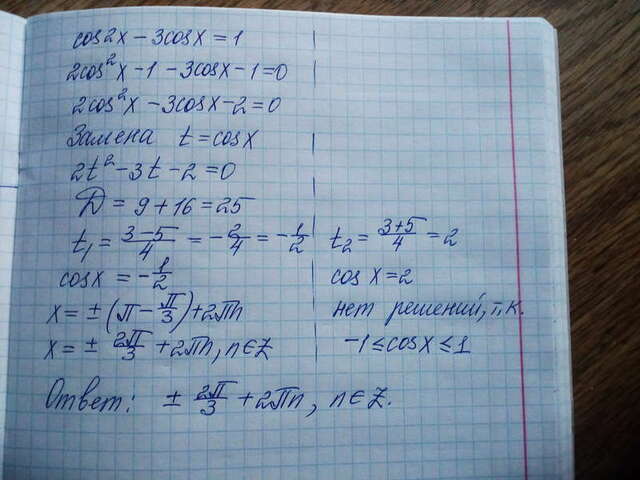 cos2x - 3cosx = 1
2cos²x - 1 - 3cosx - 1 = 0
2cos²x - 3cosx - 2 = 0
Замена t = cosx
2t² - 3t - 2 = 0
D = 9 + 16 = 25
t₁ = (3-5)/4 = -2/4 = -1/2
cosx = -1/2
x = ± (π - π/3) + 2πn
x = ± 2π/3 + 2πn, n∈Z
t₂ = (3+5)/4 = 2
cos x = 2
нет решений, т.к.
-1 ≤ cosx ≤ 1
Ответ: ± 2π/3 + 2πn, n∈Z.